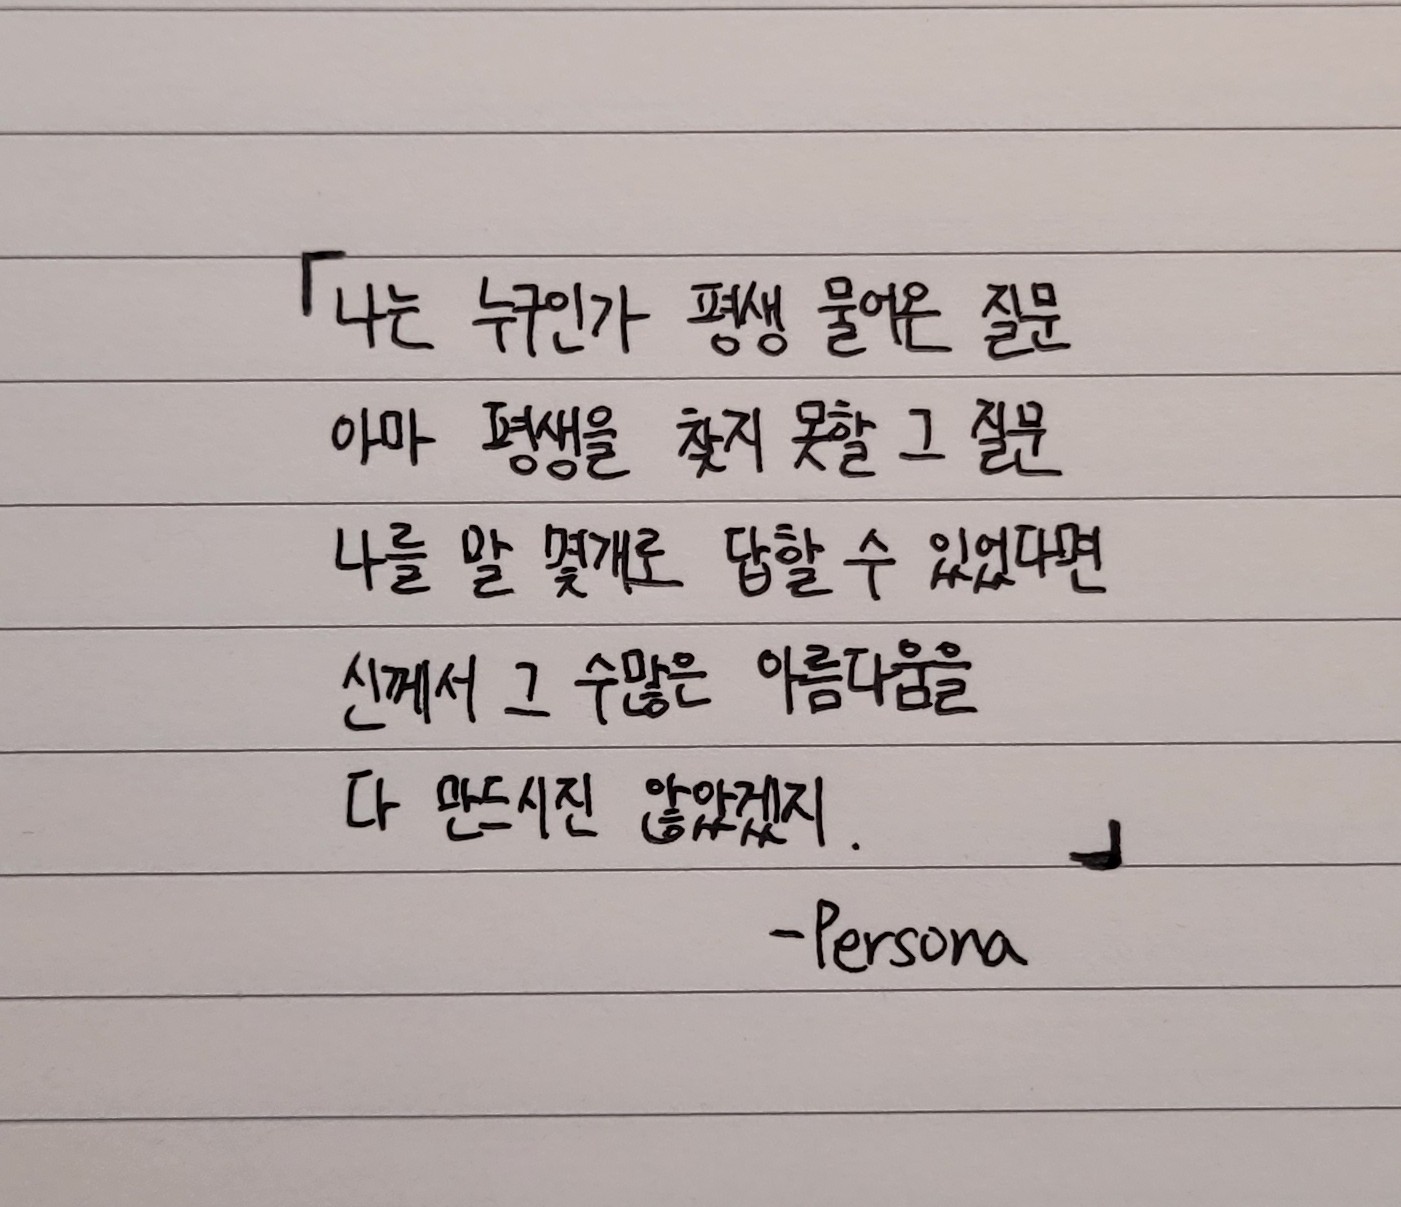 「나는 누구인가 평생 물어온 질문
아마 평생을 찾지 못할 그 질문
나를 말 몇개로 답할 수 있었다면
신께서 그 수많은 아름다움을
다 만드시진 않았겠지.」
-Persona